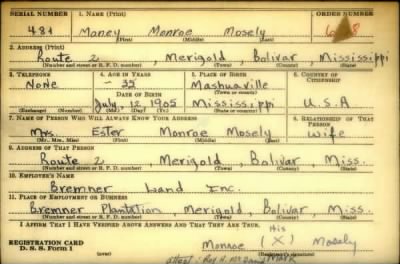 SERIAL NUMBER 1. NAME (Print) ORDER NUMBER
481 Money Monroe Mosely
(First) (Middle) (Last)
2. ADDRESS (Print)
Route 2, Merigold, Bolivar, Mississippi
(Number and street or R. F. D. number) (Town) (County) (State)
3. TELEPHONE 4. AGE IN YEARS 5. PLACE OF BIRTH 6. COUNTRY OF CITIZENSHIP
None - 35 Mashuaville
DATE OF BIRTH (Town or county)
July 12 1905 Mississippi U.S.A
(Exchange) (Number) (Mo.) (Day) (Yr.) (State or country)
7. NAME OF PERSON WHO WILL ALWAYS KNOW YOUR ADDRESS 8. RELATIONSHIP OF THAT PERSON
Mrs. Ester Monroe Mosely Wife
(Mr., Mrs., Miss) (First) (Middle) (Last)
9. ADDRESS OF THAT PERSON
Route 2 Merigold, Bolivar, Miss.
(Number and street or R. F. D. number) (Town) (County) (State)
10. EMPLOYER'S NAME
Bremner Land Inc.
11. PLACE OF EMPLOYMENT OR BUSINESS
Bremner Plantation, Merigold, Bolivar, Miss.
(Number and street or R. F. D. number) (Town) (County) (State)
I AFFIRM THAT I HAVE VERIFIED ABOVE ANSWERS AND THAT THEY ARE TRUE.
His
REGISTRATION CARD Monroe (X) Mosely
D. S. S. Form 1 Mark
attest: Roy A.